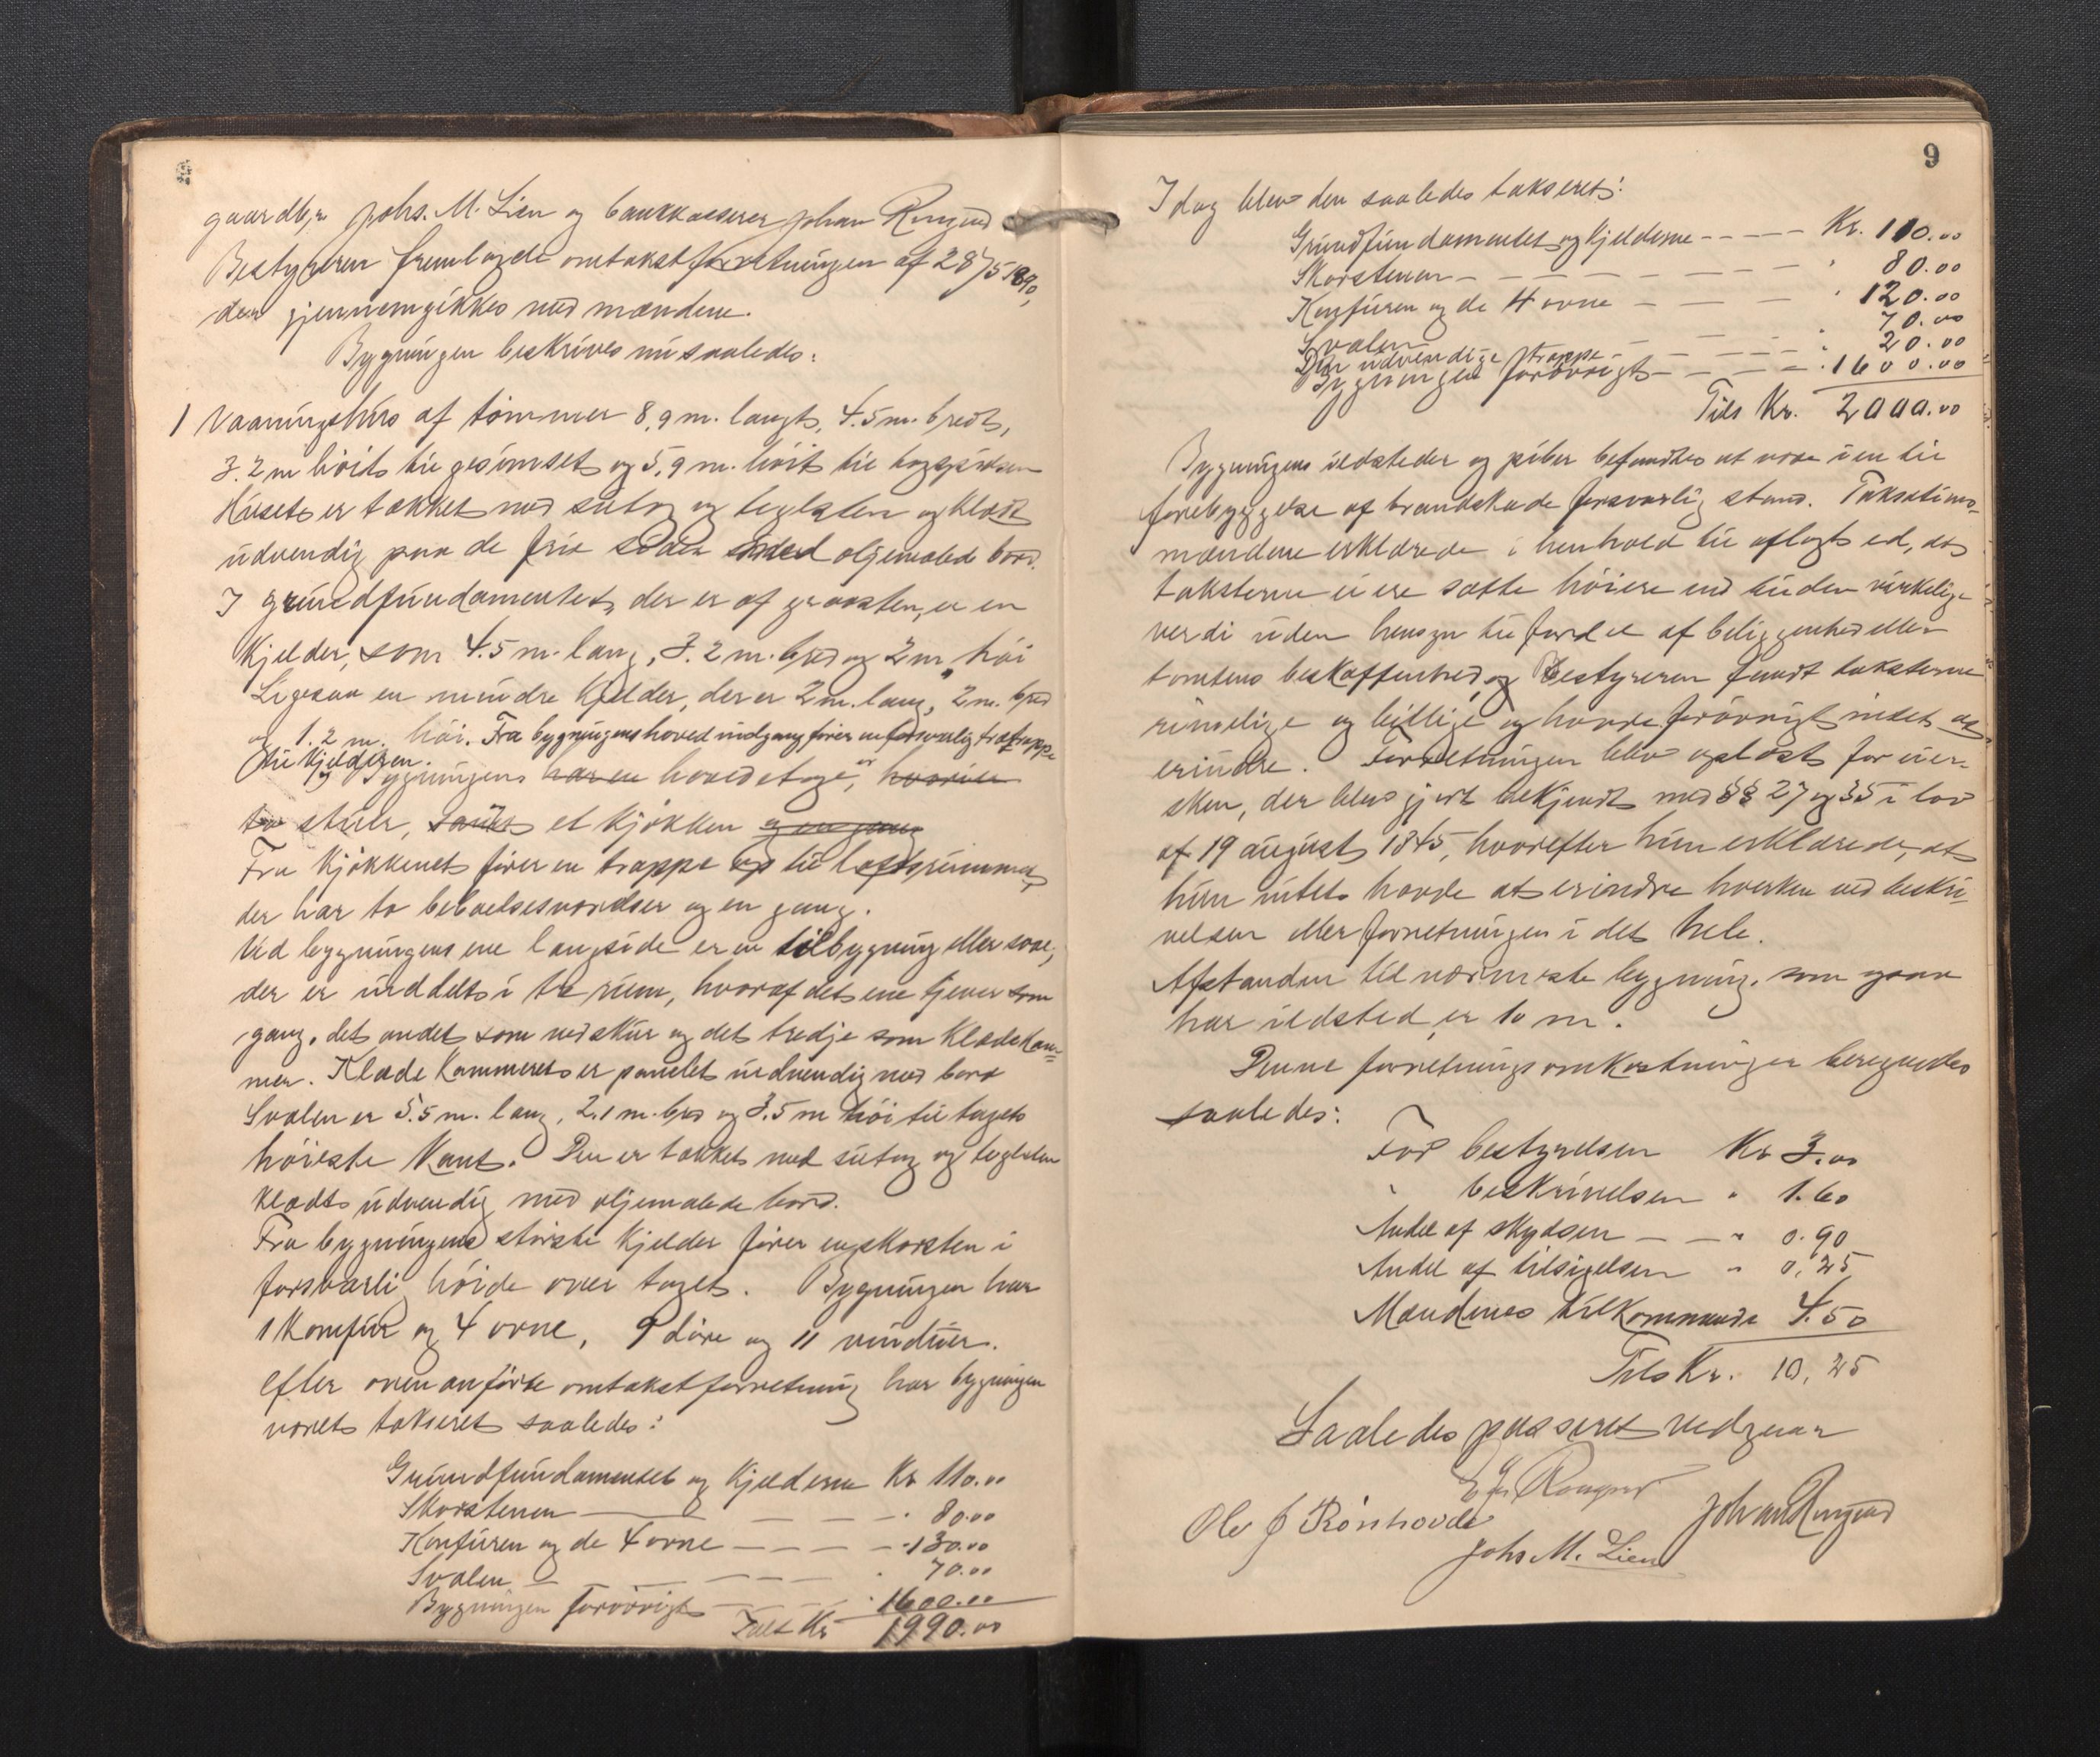 gaardbr. Johs. M. Lien og bankkasserer Johan Ringrud
Bestyreren fremlagde omtakstforretningen af 28/5 1890,
der gjennemgikkes med mændene.
Bygningen beskrives nu saaledes:
1 Vaaningshus af tømmer 8,9 m. langt, 4.5 m. bredt,
3.2 m høit til gesimset og 5,9 m. høit til
Huset er tækket med sutag og teglsten og klædt
udvendig paa de frie sider med oljemalede bord.
I grundfundamentet, der er af graasten, er en
kjelder, som 4.5 m. lang, 3.2 m. bred og 2 m. høi
Ligesaa en mindre kjelder, der er 2 m. lang, 2 m. bred
og 1.2 m. høi. Fra bygningens hovedindgang fører en forsvarlig trætrappe
til kjelderen.
Bygningens har en hovedetage, hvori er
to stuer, samt et kjøkken og en gang
Fra kjøkkenet fører en trappe op til loftsrummet,
der har to beboelsesværelser og en gang.
Ved bygningens ene langside er en tilbygning eller sval,
der er inddelt i tre rum, hvoraf det ene tjener som
gang, det andet som vedskur og det tredje som klædekam=
mer. Klædekammeret er panelet indvendig med bord
Svalen er 5.5 m. lang, 2.1 m. bred og 3.5 m høi til tagets
høieste kant. Den er tækket med sutag og teglsten
klædt udvendig med oljemalede bord.
Fra bygningens største kjelder fører en skorsten i
forsvarlig høide over taget. Bygningen har
1 komfur og 4 ovne, 9 døre og 11 vinduer.
Efter ovenanførte omtakstforretning har bygningen
været takseret saaledes:
Grundfundamentet og kjelderne Kr 110.00
Skorstenen — — — " 80.00
Komfuren og de 4 ovne — — — " 130.00
Svalen — — — " 70.00
Bygningen forøvrigt — — " 1600.00
Talt Kr 1990.00
9
Idag blev den saaledes takseret:
Grundfundamentet og kjelderne — — — Kr. 110.00
Skorstenen — — — — " 80.00
Komfuren og de 4 ovne — — — " 120.00
Svalen — — — " 70.00
Den udvendige trappe — — — " 20.00
Bygningen forøvrigt — — — " 1600.00
Tils Kr. 2000.00
Bygningens ildsteder og piber befandtes at være i en til
forebyggelse af brandskade forsvarlig stand. Taksations-
mændene erklærede i henhold til aflagt ed, at
taksterne ei ere satte høiere end til den virkelige
verdi uden hensyn til fordel af beliggenhed eller
tomtens beskaffenhed, og Bestyreren fandt taksterne
rimelige og billige og havde forøvrigt intet at
erindre. Forretningen blev oplæst for eier-
sken, der blev gjort bekjendt med §§ 27 og 35 i lov
af 19 august 1845, hvorefter hun erklærede, at
hun intet havde at erindre hverken ved beskri-
velsen eller forretningen i det hele.
Afstanden til nærmeste bygning, som
har ildsted er 10 m.
Denne forretnings omkostninger beregnedes
saaledes:
For bestyrelsen Kr 3.00
" beskrivelsen " 1.60
Andel af skydsen — — " 0.90
Andel af tilsigelsen " 0,25
Mændenes tilkommende 4.50
Tils Kr. 10,25
Saaledes passeret vedgaar
Ole J Rønhovde
Johan Ringrud
Johs M. Lien